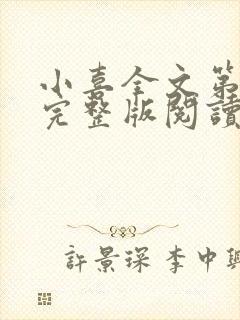 小喜全文第
完整版閱讀
許景琛李中興